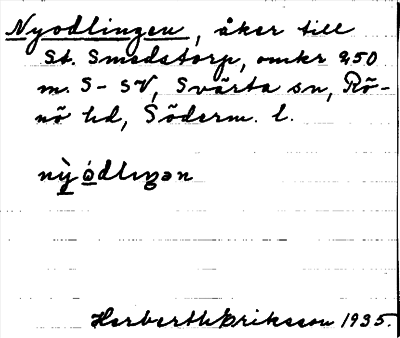 Nyodlingen, åker till
St. Smedstorp, omkr 250
m. S-SV, Svärta sn, Rö-
nö hd, Söderm. l.
nỳ ódlıŋən
Herberth Eriksson 1935.